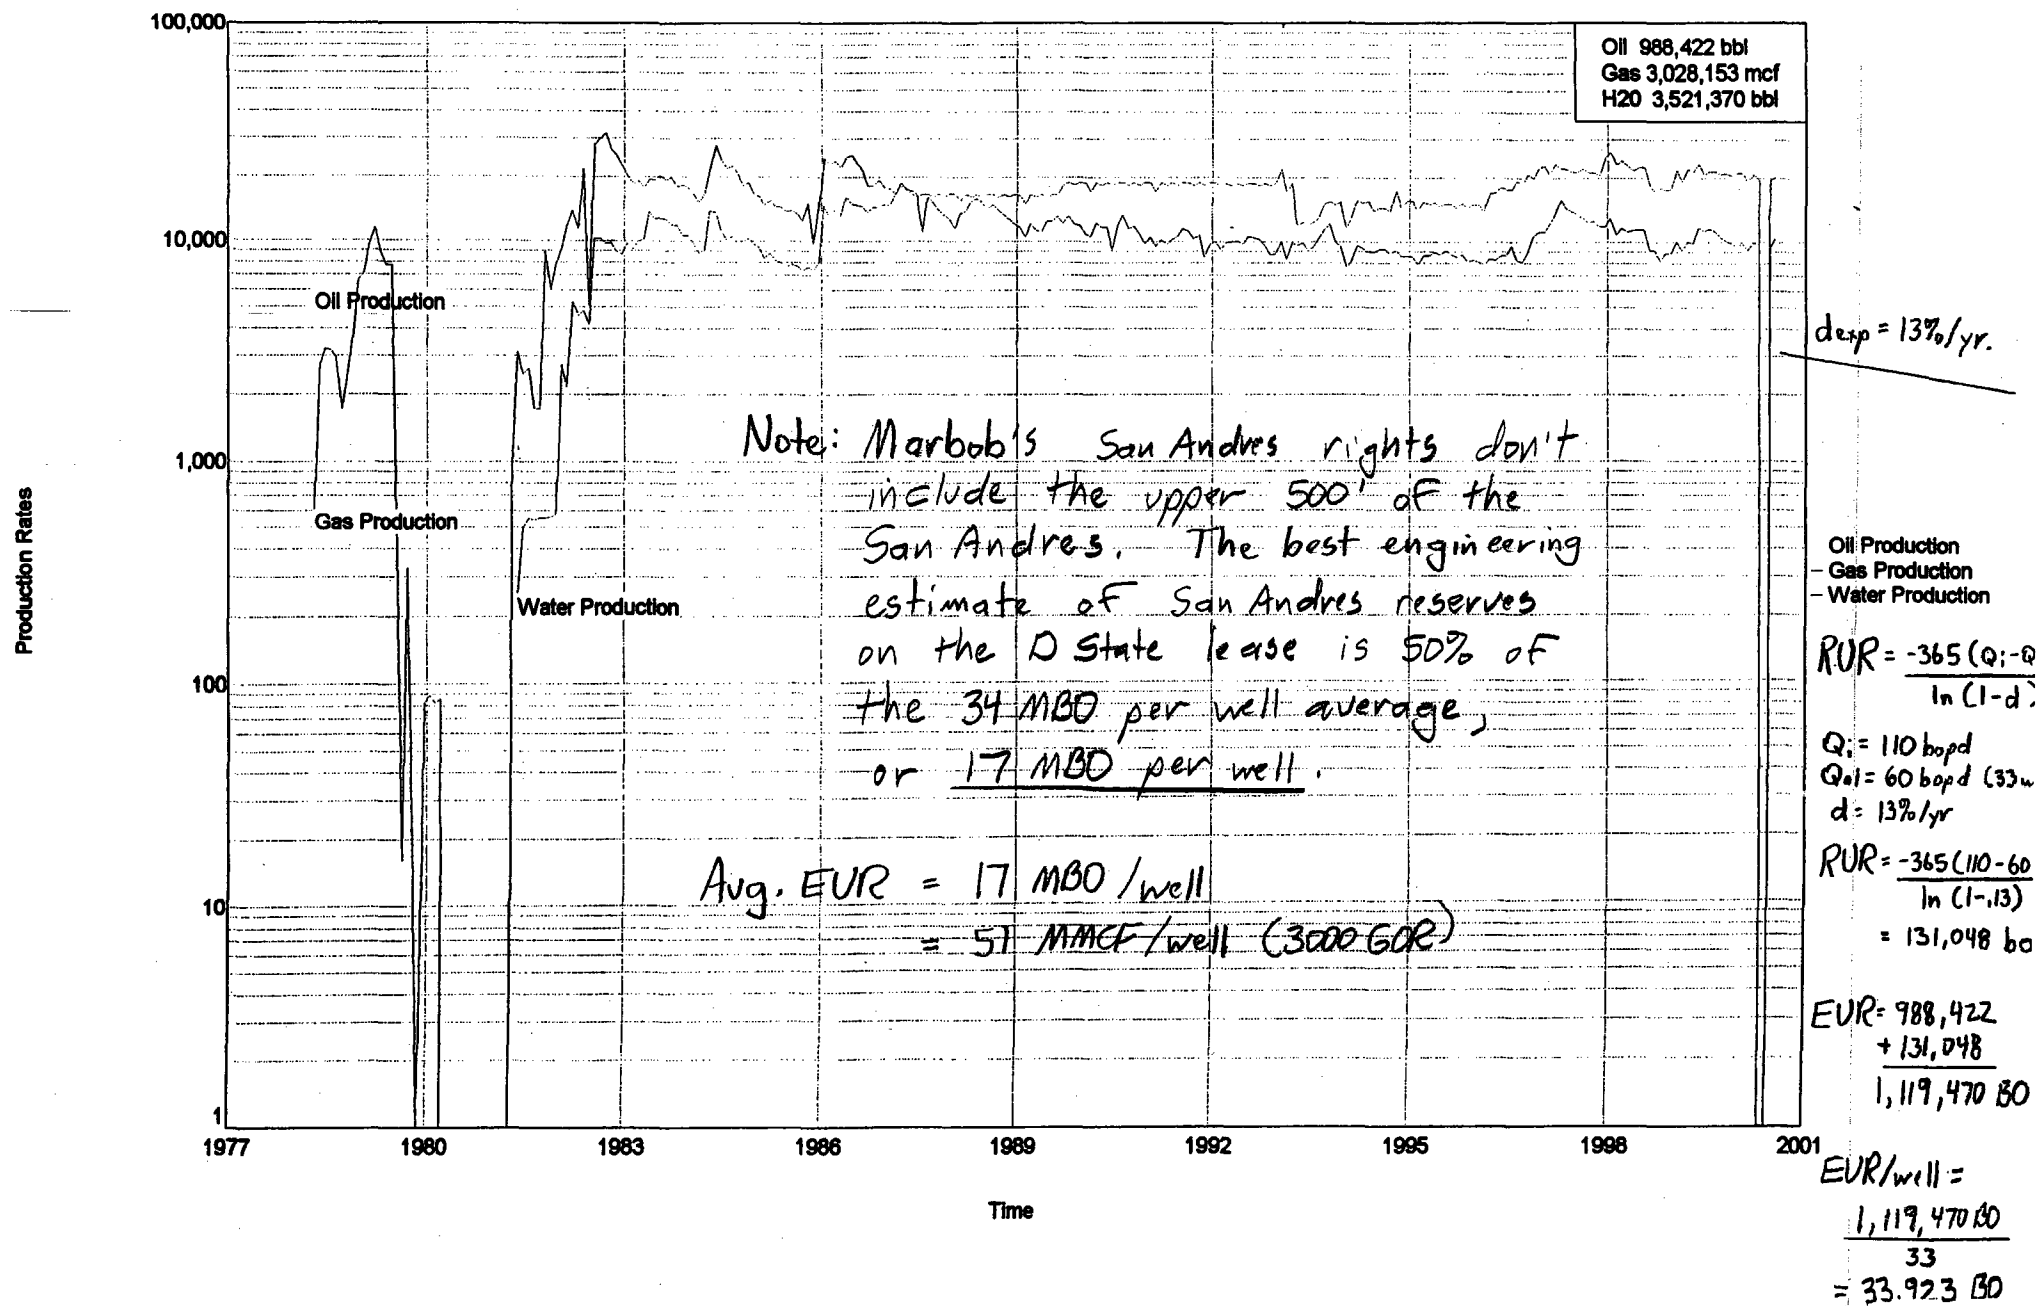 100,000
10,000
1,000
100
10
1
Production Rates
1977 1980 1983 1986 1989 1992 1995 1998 2001
Time
Oil 988,422 bbl
Gas 3,028,153 mcf
H20 3,521,370 bbl
Oil Production
Gas Production
Water Production
Note: Marbob's San Andres rights don't
include the upper 500' of the
San Andres. The best engineering
estimate of San Andres reserves
on the D State lease is 50% of
the 34 MBO per well average,
or 17 MBO per well.
Avg. EUR = 17 MBO/well
= 51 MMCF/well (3000 GOR)
dexp = 13%/yr.
Oil Production
Gas Production
Water Production
RUR = -365(Qi-Q
ln(1-d)
Qi = 110 bopd
Qal = 60 bopd (33w
d = 13%/yr
RUR = -365(110-60
ln(1-.13)
= 131,048 bo
EUR = 988,422
+ 131,048
1,119,470 BO
EUR/well =
1,119,470 BO
33
= 33.923 BO